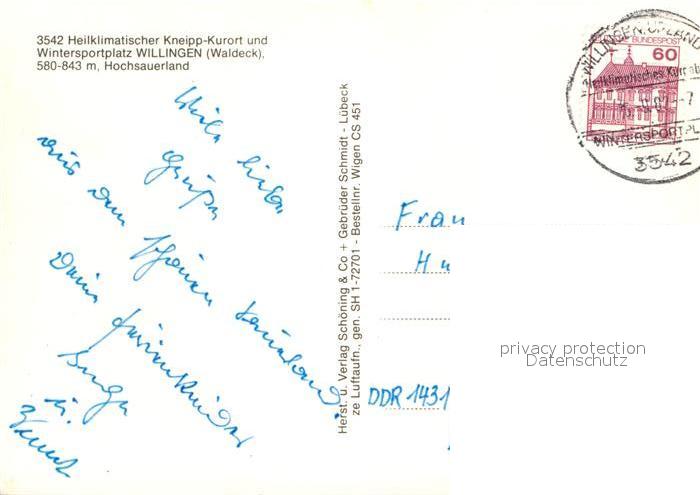 3542 Heilklimatischer Kneipp-Kurort und
Wintersportplatz WILLINGEN (Waldeck),
580-843 m, Hochsauerland
Viele lieben
Grüße
aus dem schönen Sauerland.
Deine Ferienkinder
u.
Herst. u. Verlag Schöning & Co + Gebrüder Schmidt - Lübeck
ze Luftaufn., gen. SH 1-72701 - Bestellnr. Wigen CS 451
WILLINGEN, UPLAND
BUNDESPOST
60
WINTERSPORTPL
3542
Frau
DDR 1431
privacy protection
Datenschutz